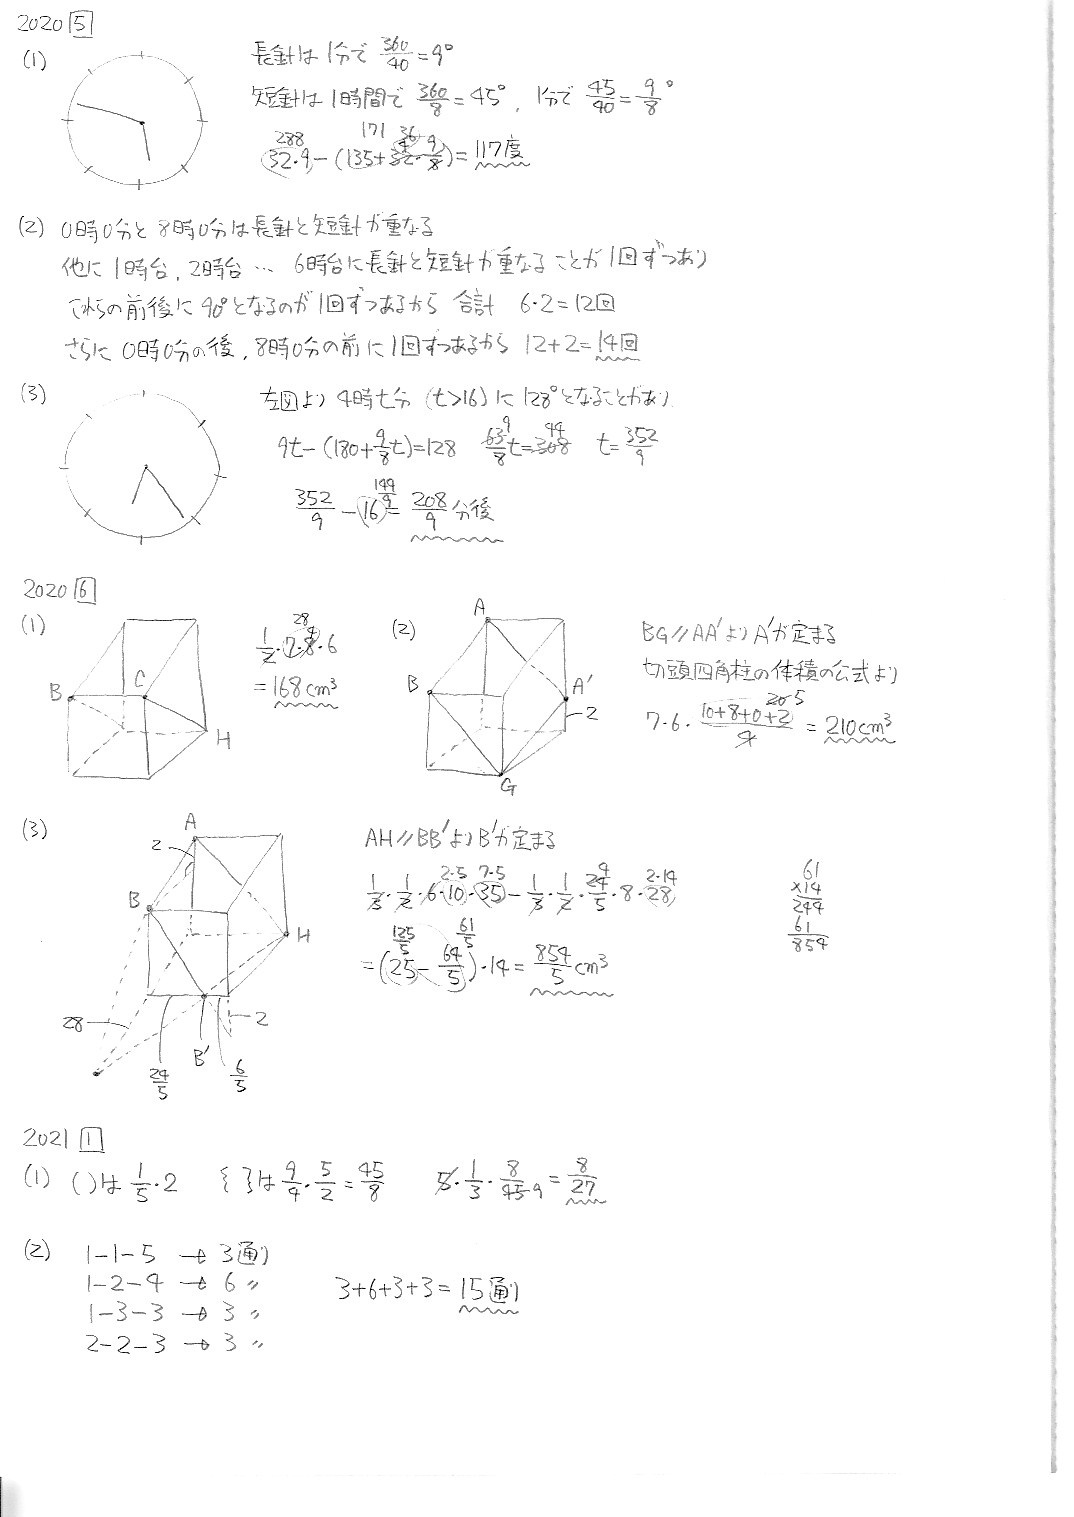 2020 5
(1)
長針は1分で 360/40 = 9°
短針は1時間で 360/8 = 45°, 1分で 45/40 = 9/8°
288 171 36
32・9 - (135 + 32・9/8) = 117度
(2) 0時0分と8時0分は長針と短針が重なる
他に1時台, 2時台 … 6時台に長針と短針が重なることが1回ずつあり
これらの前後に90°となるのが1回ずつあるから 合計 6・2 = 12回
さらに0時0分の後, 8時0分の前に1回ずつあるから 12+2 = 14回
(3)
左図より 4時t分 (t>16) に128°となることがあり
9t - (180 + 9/8 t) = 128 63/8 t = 308 9 44 t = 352/9
352/9 - 16 144/9 = 208/9 分後
2020 6
(1)
B C H
1/2・7・8・6 28 4
= 168cm³
(2)
A B A' 2 G
BG // AA' より A' が定まる
切頭四角柱の体積の公式より
7・6・(10+8+0+2)/4 20 5 = 210cm³
(3)
A 2 B H 28 24/5 B' 6/5 2
AH // BB' より B' が定まる
1/3・1/2・6・10・35 2・5 7・5 - 1/3・1/2・24/5・8・28 4 2・14
= (25 - 64/5)・14 125/5 61/5 = 854/5 cm³
61
×14
244
61
854
2021 1
(1) ( )は 1/5・2 { }は 9/4・5/2 = 45/8 5・1/3・8/45 9 = 8/27
(2)
1-1-5 → 3通り
1-2-4 → 6 〃
1-3-3 → 3 〃
2-2-3 → 3 〃
3+6+3+3 = 15通り